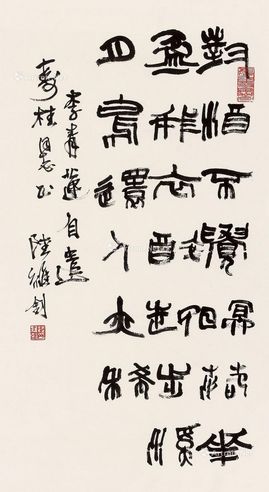 對酒不覺冥落華
盈我衣醉起步溪
月鳥還人亦稀
李青蓮自遣
壽桂同志正 陸維釗